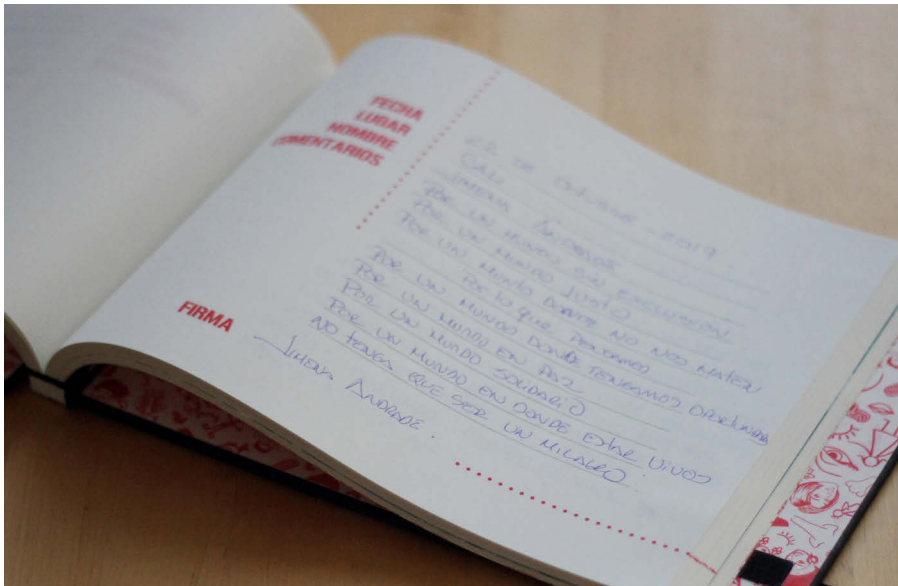 FECHA
LUGAR
NOMBRE
COMENTARIOS
22 DE Octubre - 2019.
CALI
JIMENA ANDRADE
POR UN MUNDO SIN EXCLUSIÓN
POR UN MUNDO JUSTO
POR UN MUNDO DONDE NO NOS MATEN
POR lO QUE PENSAMOS
POR UN MUNDO DONDE TENGAMOS OPORTUNIDAD
POR UN MUNDO EN PAZ
POR UN MUNDO SOLIDARIO
POR UN MUNDO EN DONDE EStAR VIVOS
NO tENGA QUE SER UN MILAGRO.
FIRMA
JIMENA ANDRADE.